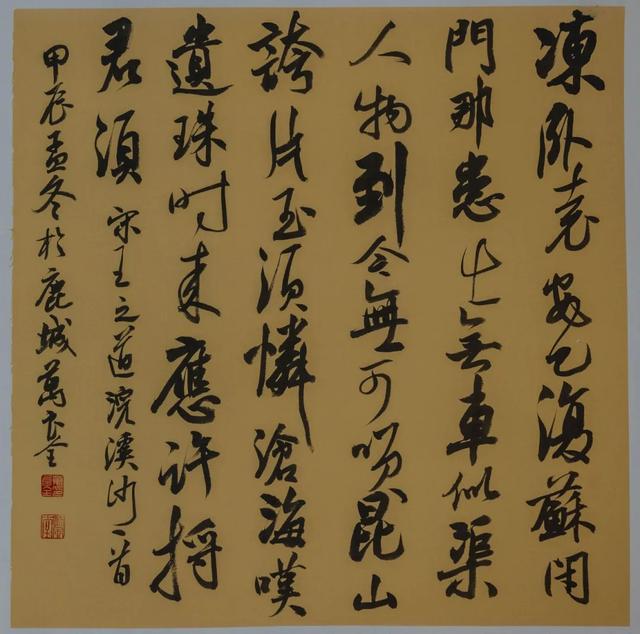 凍卧袁安已復蘇閉
門那患出無車似渠
人物到今無可昆山
誇片玉須憐滄海嘆
遺珠時来應許捋
君須 宋王之道浣溪沙一首
甲辰孟冬於鹿城萬